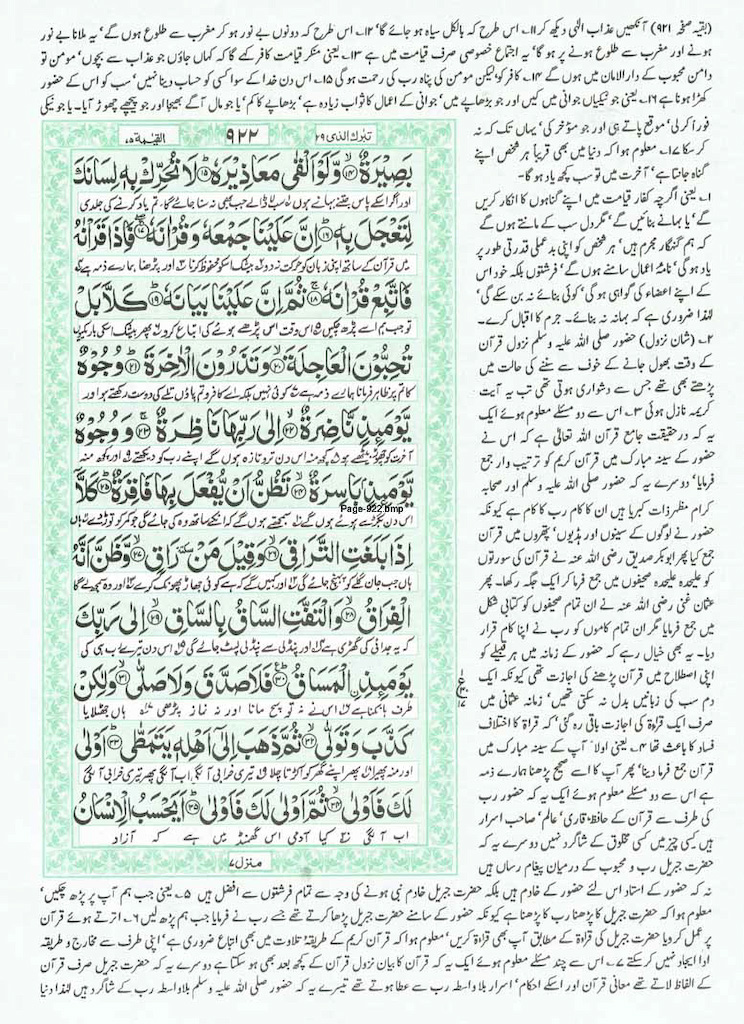 (بقیہ صفحہ ۹۲۱) آنکھیں عذاب الٰہی دیکھ کر ۱۱۔ اس طرح کہ بالکل سیاہ ہو جائے گا ۱۲۔ اس طرح کہ دونوں بے نور ہو کر مغرب سے طلوع ہوں گے' یہ ملانا بے نور
ہونے اور مغرب سے طلوع ہونے پر ہو گا' یہ اجتماع خصوصی صرف قیامت میں ہے ۱۳۔ یعنی منکر قیامت کافر کہے گا کہ کہاں جاؤں جو عذاب سے بچوں' مومن تو
دامن محبوب کے دارالامان میں ہوں گے ۱۴۔ کافر کو' لیکن مومن کی پناہ رب کی رحمت ہو گی ۱۵۔ اس دن خدا کے سوا کسی کو حساب دینا نہیں' سب کو اس کے حضور
کھڑا ہونا ہے ۱۶۔ یعنی جو نیکیاں جوانی میں کیں اور جو بڑھاپے میں' جوانی کے اعمال کا ثواب زیادہ ہے' بڑھاپے کا کم' یا جو مال آگے بھیجا اور جو پیچھے چھوڑ آیا۔ یا جو نیکی
فوراً کر لی' موقع پاتے ہی اور جو مؤخر کی' یہاں تک کہ نہ
کر سکا ۱۷۔ معلوم ہوا کہ دنیا میں بھی قریباً ہر شخص اپنے
گناہ جانتا ہے' آخرت میں تو سب کچھ یاد ہو گا۔
۱۔ یعنی اگرچہ کفار قیامت میں اپنے گناہوں کا انکار کریں
گے' یا بہانے بنائیں گے' مگر دل سب کے مانتے ہوں گے
کہ ہم گنہگار مجرم ہیں' ہر شخص کو اپنی بدعملی قدرتی طور پر
یاد ہو گی' نامۂ اعمال سامنے ہوں گے' فرشتوں بلکہ خود اس
کے اپنے اعضاء کی گواہی ہو گی' کوئی بنائے نہ بن سکے گی'
لہٰذا ضروری ہے کہ بہانہ نہ بنائے۔ جرم کا اقبال کرے۔
۲۔ (شان نزول) حضور صلی اللہ علیہ وسلم نزول قرآن
کے وقت بھول جانے کے خوف سے سننے کی حالت میں
پڑھتے بھی تھے جس سے دشواری ہوتی تھی تب یہ آیت
کریمہ نازل ہوئی ۳۔ اس سے دو مسئلے معلوم ہوئے ایک
یہ کہ درحقیقت جامع قرآن اللہ تعالیٰ ہے کہ اس نے
حضور کے سینہ مبارک میں قرآن کریم کو ترتیب وار جمع
فرمایا' دوسرے یہ کہ حضور صلی اللہ علیہ وسلم اور صحابہ
کرام مظہر ذات کبریا ہیں ان کا کام رب کا کام ہے کیونکہ
حضور نے لوگوں کے سینوں اور ہڈیوں' پتھروں میں قرآن
جمع کیا پھر ابوبکر صدیق رضی اللہ عنہ نے قرآن کی سورتوں
کو علیحدہ علیحدہ صحیفوں میں جمع فرما کر ایک جگہ رکھا۔ پھر
عثمان غنی رضی اللہ عنہ نے ان تمام صحیفوں کو کتابی شکل
میں جمع فرمایا مگر ان تمام کاموں کو رب نے اپنا کام قرار
دیا۔ یہ بھی خیال رہے کہ حضور کے زمانہ میں ہر قبیلے کو
اپنی اصطلاح میں قرآن پڑھنے کی اجازت تھی کیونکہ ایک
دم سب کی زبانیں بدل نہ سکتی تھیں' زمانہ عثمانی میں
صرف ایک قراۃ کی اجازت باقی رہ گئی' کہ قراۃ کا اختلاف
فساد کا باعث تھا ۴۔ یعنی اولاً آپ کے سینہ مبارک میں
قرآن جمع فرما دینا' پھر آپ کا اسے صحیح پڑھنا ہمارے ذمہ
ہے اس سے دو مسئلے معلوم ہوئے ایک یہ کہ حضور رب
کی طرف سے قرآن کے حافظ' قاری' عالم' صاحب اسرار
ہیں کسی چیز میں کسی مخلوق کے شاگرد نہیں دوسرے یہ کہ
حضرت جبریل رب و محبوب کے درمیان پیغام رساں ہیں
تبٰرک الذی ۲۹
۹۲۲
القیٰمۃ ۷۵
بَصِيرَةٌ ۙ۱۴ وَّلَوْ اَلْقٰى مَعَاذِيْرَهٗ ؕ۱۵ لَا تُحَرِّكْ بِهٖ لِسَانَكَ
اور اگر اسکے پاس جتنے بہانے ہوں سب لا ڈالے جب بھی نہ سنا جائے گا ۱ تم یاد کرنے کی جلدی
لِتَعْجَلَ بِهٖ ؕ۱۶ اِنَّ عَلَيْنَا جَمْعَهٗ وَ قُرْاٰنَهٗ ۚۖ۱۷ فَاِذَا قَرَاْنٰهُ
میں قرآن کے ساتھ اپنی زبان کو حرکت نہ دو ۲ بیشک اسکو محفوظ کرنا ۳ اور پڑھنا ہمارے ذمہ ہے ۴
فَاتَّبِعْ قُرْاٰنَهٗ ۚ۱۸ ثُمَّ اِنَّ عَلَيْنَا بَيَانَهٗ ؕ۱۹ كَلَّا بَلْ
تو جب ہم اسے پڑھ چکیں ۵ اس وقت اس پڑھے ہوئے کی اتباع کرو ۶ پھر بیشک اسکی باریکیوں
تُحِبُّوْنَ الْعَاجِلَةَ ۙ۲۰ وَ تَذَرُوْنَ الْاٰخِرَةَ ؕ۲۱ وُجُوْهٌ
کا تم پر ظاہر فرمانا ہمارے ذمہ ہے ۷ کوئی نہیں بلکہ اے کافرو تم پاؤں تلے کی دوست رکھتے ہو اور
يَّوْمَىِٕذٍ نَّاضِرَةٌ ۙ۲۲ اِلٰى رَبِّهَا نَاظِرَةٌ ۚ۲۳ وَ وُجُوْهٌ
آخرت کو چھوڑ بیٹھے ہو ۸ کچھ منہ اس دن تر و تازہ ہوں گے اپنے رب کو دیکھتے ۹ اور کچھ منہ
يَّوْمَىِٕذٍۭ بَاسِرَةٌ ۙ۲۴ تَظُنُّ اَنْ يُّفْعَلَ بِهَا فَاقِرَةٌ ؕ۲۵ كَلَّاۤ
Page-922.bmp
اس دن بگڑے ہوئے ہوں گے سمجھتے ہوں گے کہ انکے ساتھ وہ کی جائے گی جو کمر کو توڑ دے ہاں
اِذَا بَلَغَتِ التَّرَاقِيَ ۙ۲۶ وَ قِيْلَ مَنْ ٚ رَاقٍ ۙ۲۷ وَّ ظَنَّ اَنَّهُ
ہاں جب جان گلے کو پہنچ جائے گی اور کہیں گے کہ ہے کوئی جھاڑ پھونک کرے اور وہ سمجھ لے گا
الْفِرَاقُ ۙ۲۸ وَ الْتَفَّتِ السَّاقُ بِالسَّاقِ ۙ۲۹ اِلٰى رَبِّكَ
کہ یہ جدائی کی گھڑی ہے اور پنڈلی سے پنڈلی لپٹ جائے گی اس دن تیرے رب ہی کی
يَوْمَىِٕذِ ِ۟الْمَسَاقُ ؕ۳۰ فَلَا صَدَّقَ وَ لَا صَلّٰى ۙ۳۱ وَ لٰكِنْ
طرف ہانکنا ہے اس نے نہ تو سچ مانا اور نہ نماز پڑھی ہاں جھٹلایا
كَذَّبَ وَ تَوَلّٰى ۙ۳۲ ثُمَّ ذَهَبَ اِلٰۤى اَهْلِهٖ يَتَمَطّٰى ؕ۳۳ اَوْلٰى
اور منہ پھیرا پھر اپنے گھر کو اکڑتا چلا تیری خرابی آ لگی اب آ لگی پھر تیری خرابی آ لگی
لَكَ فَاَوْلٰى ۙ۳۴ ثُمَّ اَوْلٰى لَكَ فَاَوْلٰى ؕ۳۵ اَيَحْسَبُ الْاِنْسَانُ
اب آ لگی کیا آدمی اس گھمنڈ میں ہے کہ آزاد
منزل ۷
نہ کہ حضور کے استاد اس لئے حضور کے خادم ہیں بلکہ حضرت جبریل خادم نبی ہونے کی وجہ سے تمام فرشتوں سے افضل ہیں ۵۔ یعنی جب ہم آپ پر پڑھ چکیں'
معلوم ہوا کہ حضرت جبریل کا پڑھنا رب کا پڑھنا ہے کیونکہ حضور کے سامنے حضرت جبریل پڑھا کرتے تھے جسے رب نے فرمایا جب ہم پڑھ لیں ۶۔ اترتے ہوئے قرآن
پر عمل کرو یا حضرت جبریل کی قراۃ کے مطابق آپ بھی قراۃ کریں' معلوم ہوا کہ قرآن کریم کے طریقۂ تلاوت میں بھی اتباع ضروری ہے' اپنی طرف سے مخارج و طریقہ
ادا ایجاد نہیں کر سکتے ۷۔ اس سے چند مسئلے معلوم ہوئے ایک یہ کہ قرآن کا بیان نزول قرآن کے کچھ بعد بھی ہو سکتا ہے دوسرے یہ کہ حضرت جبریل صرف قرآن
کے الفاظ لاتے تھے معانی قرآن اور اسکے احکام' اسرار بلاواسطہ رب سے عطا ہوتے تھے تیسرے یہ کہ حضور صلی اللہ علیہ وسلم بلاواسطہ رب کے شاگرد ہیں لہٰذا دنیا